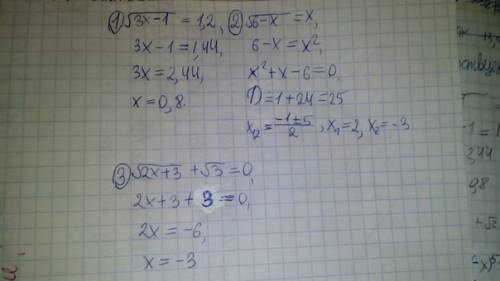 ① √3x-1 = 1,2,
3x-1=1,44,
3x=2,44,
x=0,8.
② √6-x = x,
6-x=x²,
x²+x-6=0,
D=1+24=25
x₁,₂=(-1±5)/2, x₁=2, x₂=-3
③ √2x+3 + √3=0,
2x+3+3=0,
2x=-6,
x=-3